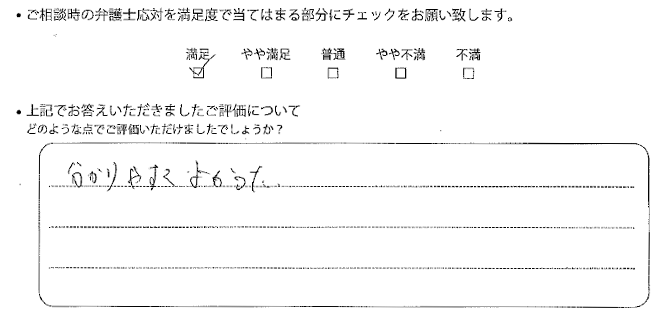 ・ご相談時の弁護士応対を満足度で当てはまる部分にチェックをお願い致します。
満足 やや満足 普通 やや不満 不満
☑ □ □ □ □
・上記でお答えいただきましたご評価について
どのような点でご評価いただけましたでしょうか？
分かりやすく よかった。